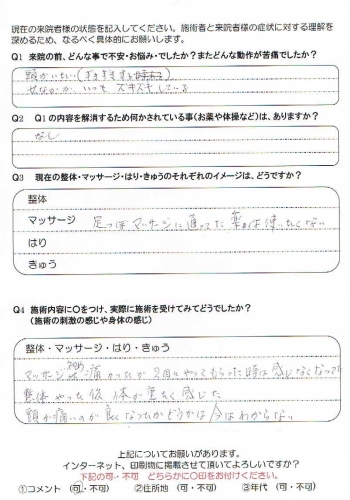 現在の来院者様の状態を記入してください。施術者と来院者様の症状に対する理解を
深めるため、なるべく具体的にお願いします。
Q1 来院の前、どんな事で不安・お悩み・でしたか？またどんな動作が苦痛でしたか？
頭がいたい
せなかが、いつも ズキズキしている
Q2 Q1の内容を解消するため何かされている事(お薬や体操など)は、ありますか？
なし
Q3 現在の整体・マッサージ・はり・きゅうのそれぞれのイメージは、どうですか？
整体
マッサージ 足つぼマッサージに通ってた 薬は使いたくない
はり
きゅう
Q4 施術内容に○をつけ、実際に施術を受けてみてどうでしたか？
(施術の刺激の感じや身体の感じ)
整体・マッサージ・はり・きゅう
マッサージ 痛かったが2回やってもらった時は感じなくなって
整体やった後 体が重たく感じた
頭が痛いのが良くなったかどうかは今はわからない
上記についてお願いがあります。
インターネット、印刷物に掲載させて頂いてよろしいですか？
下記の可・不可 どちらかに○印をお付けください。
①コメント (可・不可) ②住所地 (可・不可) ③年代 (可・不可)